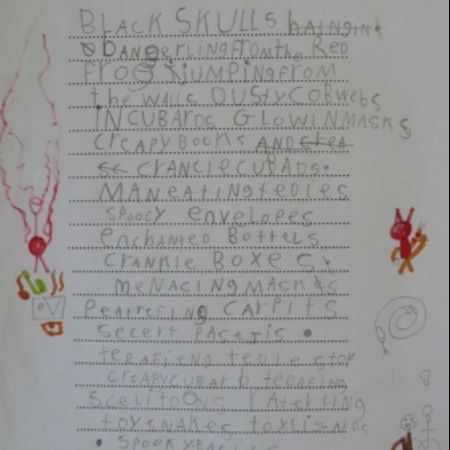 BLACK SKULLS hAINGIN
DANgERLING FROM thE RED
FrOg JUMPING FROM
the WALLS DUSTY COBWEBS
INCUBARDS GLOWIN MASKS
CreApY BOOKS AND
CrANCIE CUBADS.
MAN eATING teDIES
SpOOCY envelOPES
enchANteD BOTTELS
CrANKIE BOXES
MeNASINg MASKAS
CARPITS
SeCerT pACegIS
terAFIeNg teDIe StOY
CreApY CUBARD terAFINg
SCelITOONS rATerLING
TOY SNAKES TOY LISNDS
• SPOOKY